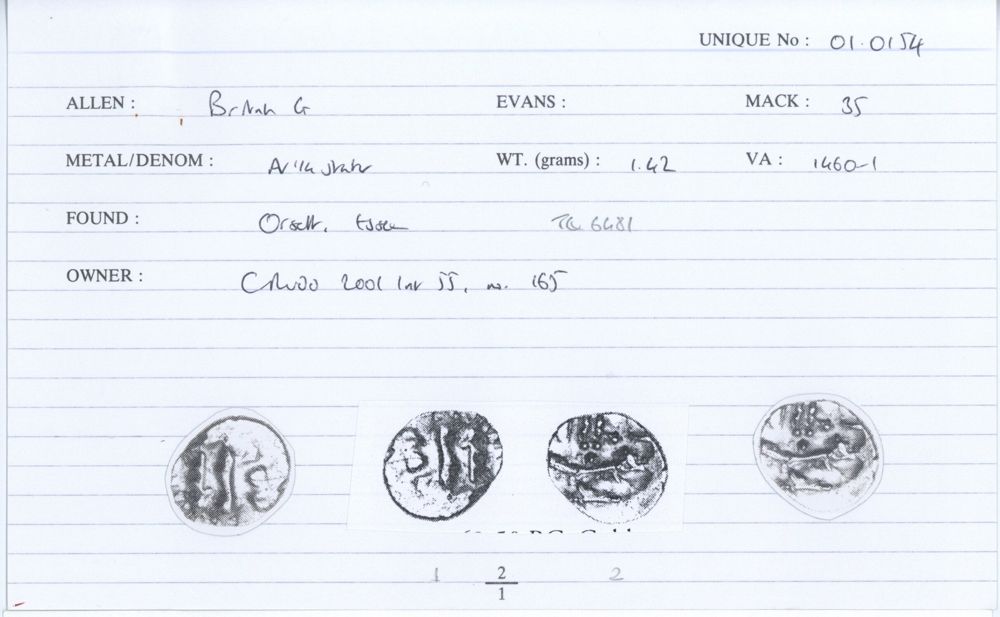 UNIQUE No : 01.0154
ALLEN : British G EVANS : MACK : 35
METAL/DENOM : AV 1/4 stater WT. (grams) : 1.42 VA : 1460-1
FOUND : Orsett, Essex TQ 6481
OWNER : 2001 List 55, no. 165
1 2 2
1